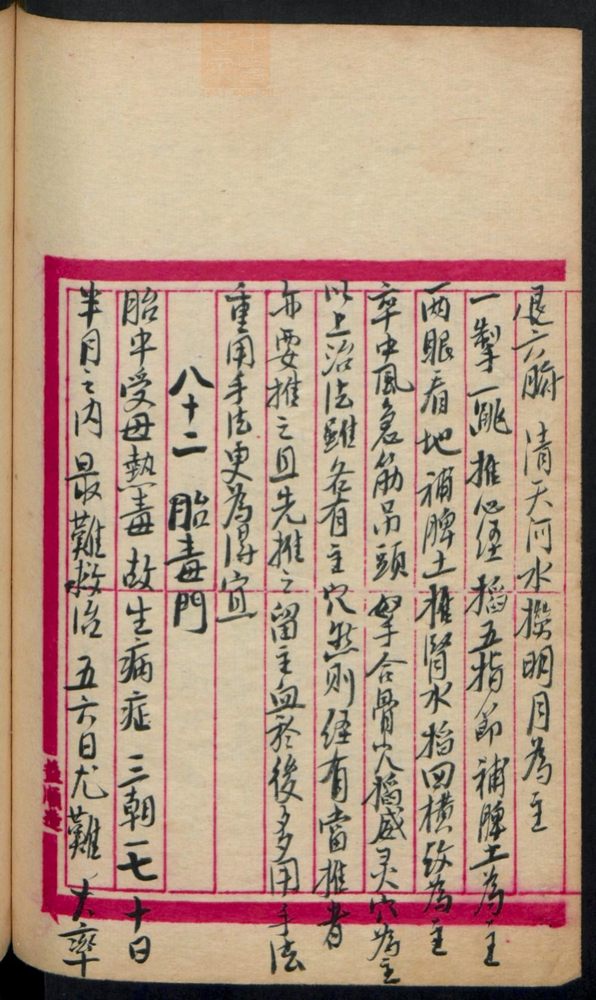 退六腑 清天河水撈明月為主
一掣一跳推心经掐五指節補脾土為主
两眼看地補脾土推腎水掐四横紋為主
卒中風急筋吊頭拿合骨穴掐威灵穴為主
以上治法雖各有主穴然则经有當推者
亦要推之且先推之留主血於後多用手法
重用手法更為得宜
八十二 胎毒門
胎中受母熱毒故生病症 三朝一七十日
半月之内最難救治 五六日尤難 大率
益順號